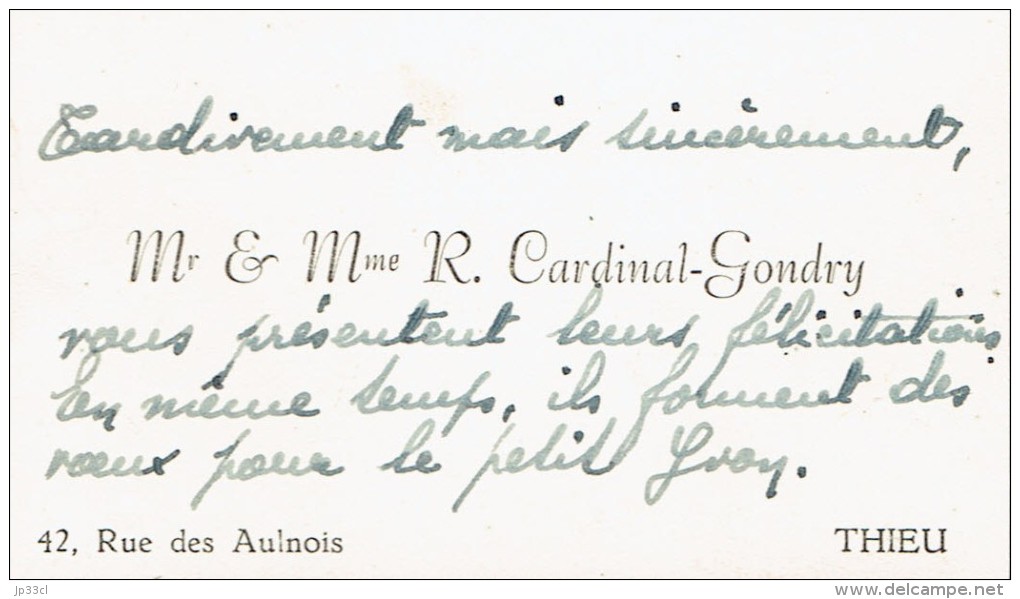 Tardivement mais sincèrement,
Mr & Mme R. Cardinal-Gondry
vous présentent leurs félicitations
En même temps, ils forment des
vœux pour le petit Yvon.
42, Rue des Aulnois THIEU
jp33cl
www.delcampe.net